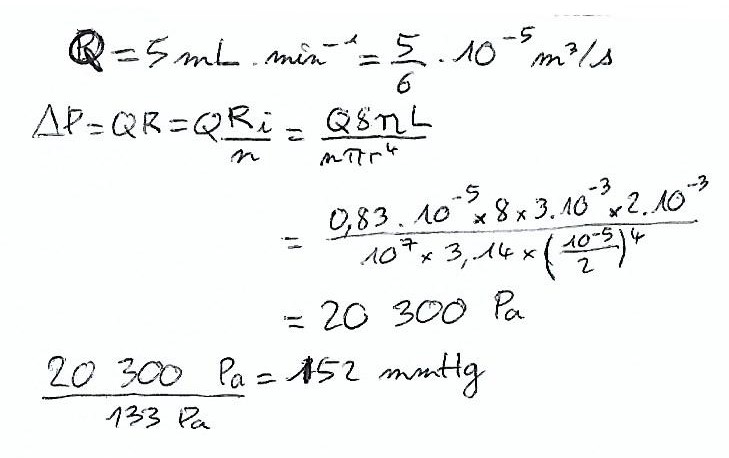 Q = 5 mL . min⁻¹ = 5/6 . 10⁻⁵ m³/s
ΔP = QR = Q Ri/n = Q8ηL/nπr⁴
= 0,83 . 10⁻⁵ × 8 × 3.10⁻³ × 2.10⁻³ / 10⁷ × 3,14 × (10⁻⁵/2)⁴
= 20 300 Pa
20 300 Pa / 133 Pa = 152 mmHg